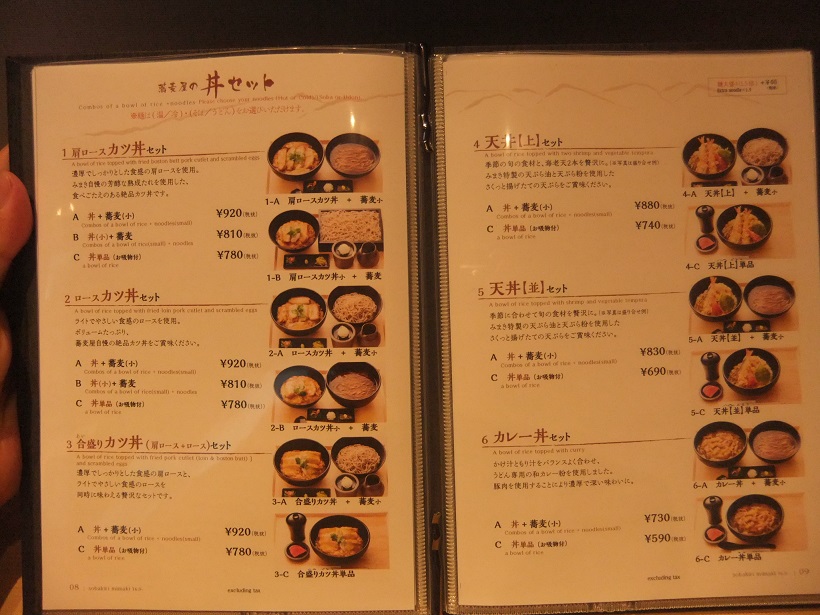 蕎麦屋の 丼セット
Combos of a bowl of rice +noodles
1 肩ロースカツ丼セット
A bowl of rice topped with fried boston butt pork cutlet and scrambled eggs
濃厚でしっかりとした食感の肩ロースを使用。
みまき自慢の芳醇な熟成たれを使用した。
食べごたえのある絶品カツ丼です。
A 丼 + 蕎麦(小) ¥920(税抜)
Combos of a bowl of rice + noodles(small)
B 丼(小) + 蕎麦 ¥810(税抜)
Combos of a bowl of rice(small) + noodles
C 丼単品(お吸物付) ¥780(税抜)
a bowl of rice
1-A 肩ロースカツ丼 + 蕎麦小
1-B 肩ロースカツ丼小 + 蕎麦
2 ロースカツ丼セット
A bowl of rice topped with fried loin pork cutlet and scrambled eggs
ライトでやさしい食感のロースを使用。
ボリュームたっぷり。
蕎麦屋自慢の絶品カツ丼をご賞味ください。
A 丼 + 蕎麦(小) ¥920(税抜)
Combos of a bowl of rice + noodles(small)
B 丼(小) + 蕎麦 ¥810(税抜)
Combos of a bowl of rice(small) + noodles
C 丼単品(お吸物付) ¥780(税抜)
a bowl of rice
2-A ロースカツ丼 + 蕎麦小
2-B ロースカツ丼小 + 蕎麦
3 合盛りカツ丼(肩ロース+ロース)セット
A bowl of rice topped with fried pork cutlet (loin & boston butt)
and scrambled eggs
濃厚でしっかりとした食感の肩ロースと、
ライトでやさしい食感のロースを
同時に味わえる贅沢なセットです。
A 丼 + 蕎麦(小) ¥920(税抜)
Combos of a bowl of rice + noodles(small)
C 丼単品(お吸物付) ¥780(税抜)
a bowl of rice
3-A 合盛りカツ丼 + 蕎麦小
3-C 合盛りカツ丼単品
08
excluding tax
4 天丼【上】セット
A bowl of rice topped with two shrimp and vegetable tempura
季節の旬の食材と、海老天2本を贅沢に。(※写真は盛り合せ例)
みまき特製の天ぷら油と天ぷら粉を使用した
さくっと揚げたての天ぷらをご賞味ください。
A 丼 + 蕎麦(小) ¥880(税抜)
Combos of a bowl of rice + noodles(small)
C 丼単品(お吸物付) ¥740(税抜)
a bowl of rice
4-A 天丼【上】 + 蕎麦小
4-C 天丼【上】単品
5 天丼【並】セット
A bowl of rice topped with shrimp and vegetable tempura
季節に合わせて旬の食材を贅沢に。(※写真は盛り合せ例)
みまき特製の天ぷら油と天ぷら粉を使用した
さくっと揚げたての天ぷらをご賞味ください。
A 丼 + 蕎麦(小) ¥830(税抜)
Combos of a bowl of rice + noodles(small)
C 丼単品(お吸物付) ¥690(税抜)
a bowl of rice
5-A 天丼【並】 + 蕎麦小
5-C 天丼【並】単品
6 カレー丼セット
A bowl of rice topped with curry
かけ汁ともり汁をバランスよく合わせ、
うどん専用の和カレー粉を使用しました。
豚肉を使用することにより濃厚で深い味わいに。
A 丼 + 蕎麦(小) ¥730(税抜)
Combos of a bowl of rice + noodles(small)
C 丼単品(お吸物付) ¥590(税抜)
a bowl of rice
6-A カレー丼 + 蕎麦小
6-C カレー丼単品
excluding tax
09